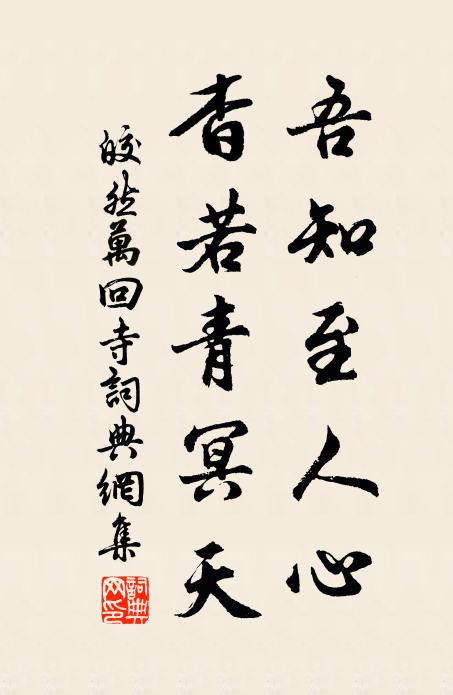 吾知至人心
杳若青冥天
皎然萬回寺詞典網集
詞典网印